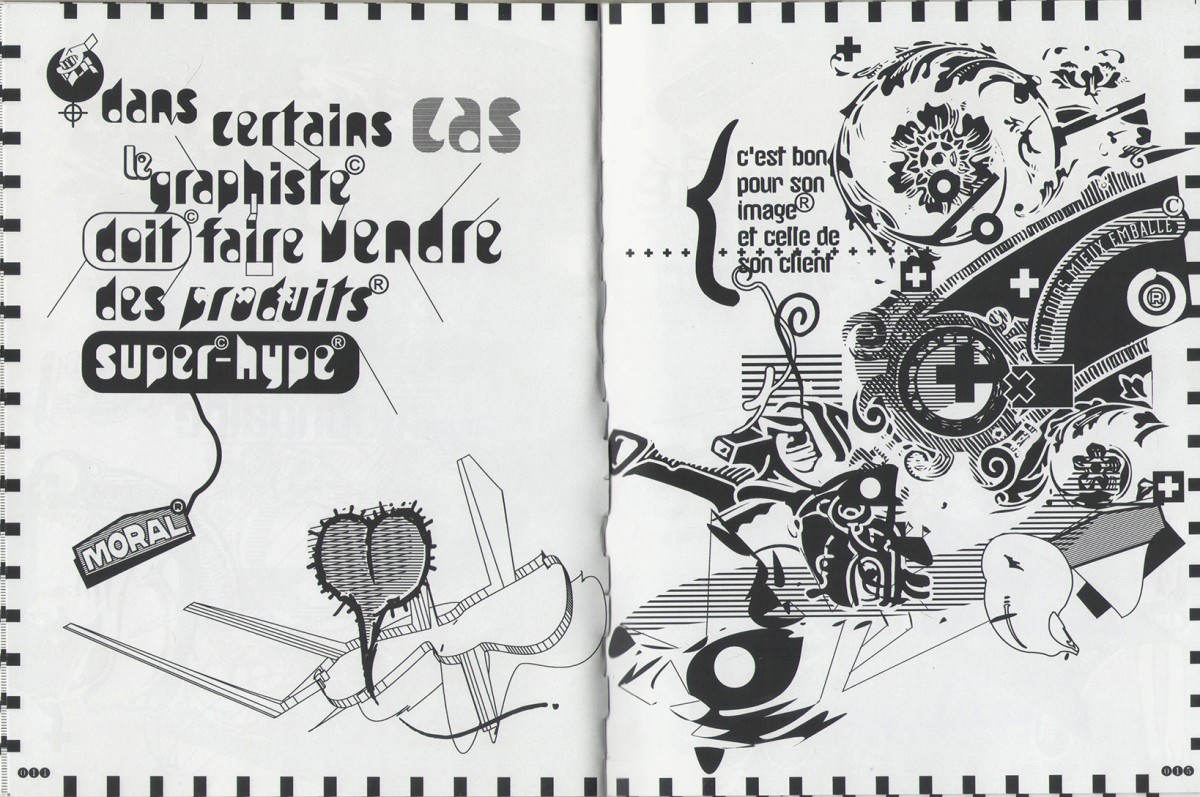 dans
certains cas
le
graphiste©
doit© faire vendre
des produits®
super-hype©®
MORAL®
c'est bon
pour son
image®
et celle de
son client
©
TOUJOURS MIEUX EMBALLÉ
®
015